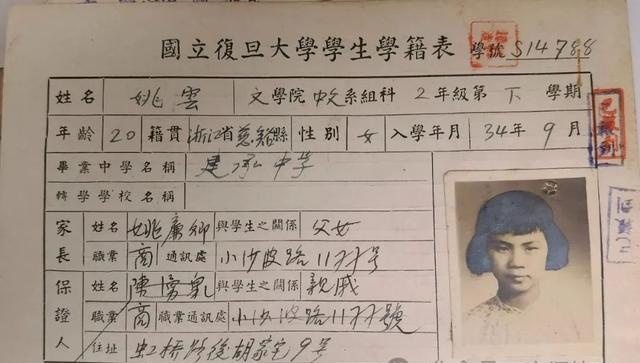 國立復旦大學學生學籍表 學號 S14788
姓名 姚雲 文學院 中文系組科 2年級第下學期
年齡 20 籍貫 浙江省慈谿縣 性別 女 入學年月 34年9月
畢業中學名稱 建承中学
轉學學校名稱
家長 姓名 姚廣卿 與學生之關係 父女
職業 商 通訊處 小沙渡路 号
保證人 姓名 陳 泉 與學生之關係 親戚
職業 商 職業通訊處 小沙渡路 號
住址 虹橋路後胡家宅9号